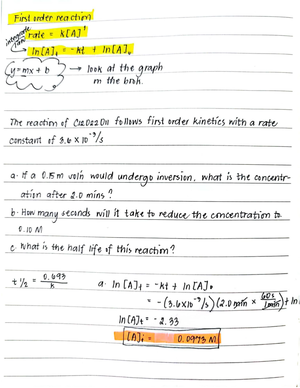 First order reaction
integrated form rate = k[A]¹
ln[A]t = -kt + ln[A]₀
y = mx + b → look at the graph
m the broh.
The reaction of C12O22O11 follows first order kinetics with a rate
constant of 3.6 x 10⁻³/s
a. if a 0.15 m soln would undergo inversion, what is the concentr-
ation after 2.0 mins?
b. How many seconds will it take to reduce the concentration to
0.10 M
c. What is the half life of this reaction?
t 1/2 = 0.693/k a. ln [A]t = -kt + ln [A]₀
= -(3.6x10⁻³/s)(2.0 min x 60s/1min) + ln
ln[A]t = -2.33
[A]t = 0.0973 M